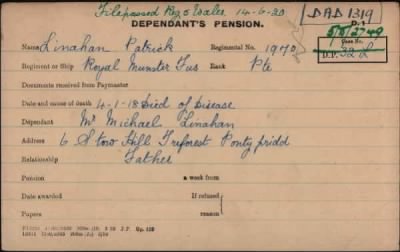 Filepassed Reg o Wales 14-6-20
DAD 1319
DEPENDANT'S PENSION.
D.1
5/D/2749
Case No.
D.P. 32 L
Name Linahan Patrick Regimental No. 1970
Regiment or Ship Royal Munster Fus Rank Pte
Documents received from Paymaster
Date and cause of death 4-1-18 Died of Disease
Dependant Mr Michael Linahan
Address 6 Stow Hill Treforest Pontypridd
Relationship Father
Pension a week from
Date awarded If refused
Papers reason